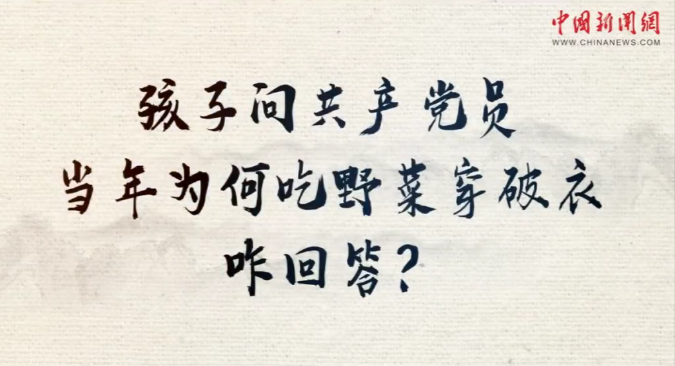 中国新闻網
WWW.CHINANEWS.COM
孩子问共产党员
当年为何吃野菜穿破衣
咋回答?